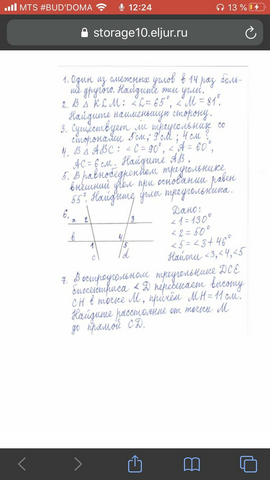 MTS #BUD'DOMA 12:24 13 %
storage10.eljur.ru
1. Один из смежных углов в 14 раз боль-
ше другого. Найдите эти углы.
2. В △ KLM: <L = 65°, <M = 81°.
Найдите наименьшую сторону.
3. Существует ли треугольник со
сторонами 5 см; 9 см; 4 см?
4. В △ ABC: <C = 90°, <A = 60°,
AC = 6 см. Найдите AB.
5. В равнобедренном треугольнике
внешний угол при основании равен
55°. Найдите углы треугольника.
6.
a 2 3
в 4
1 5
c d
Дано:
<1 = 130°
<2 = 50°
<5 = <3 + 46°
Найти <3, <4, <5
7. В остроугольном треугольнике DCE
биссектриса <D пересекает высоту
CH в точке M, причём MH = 11 см.
Найдите расстояние от точки M
до прямой CD.